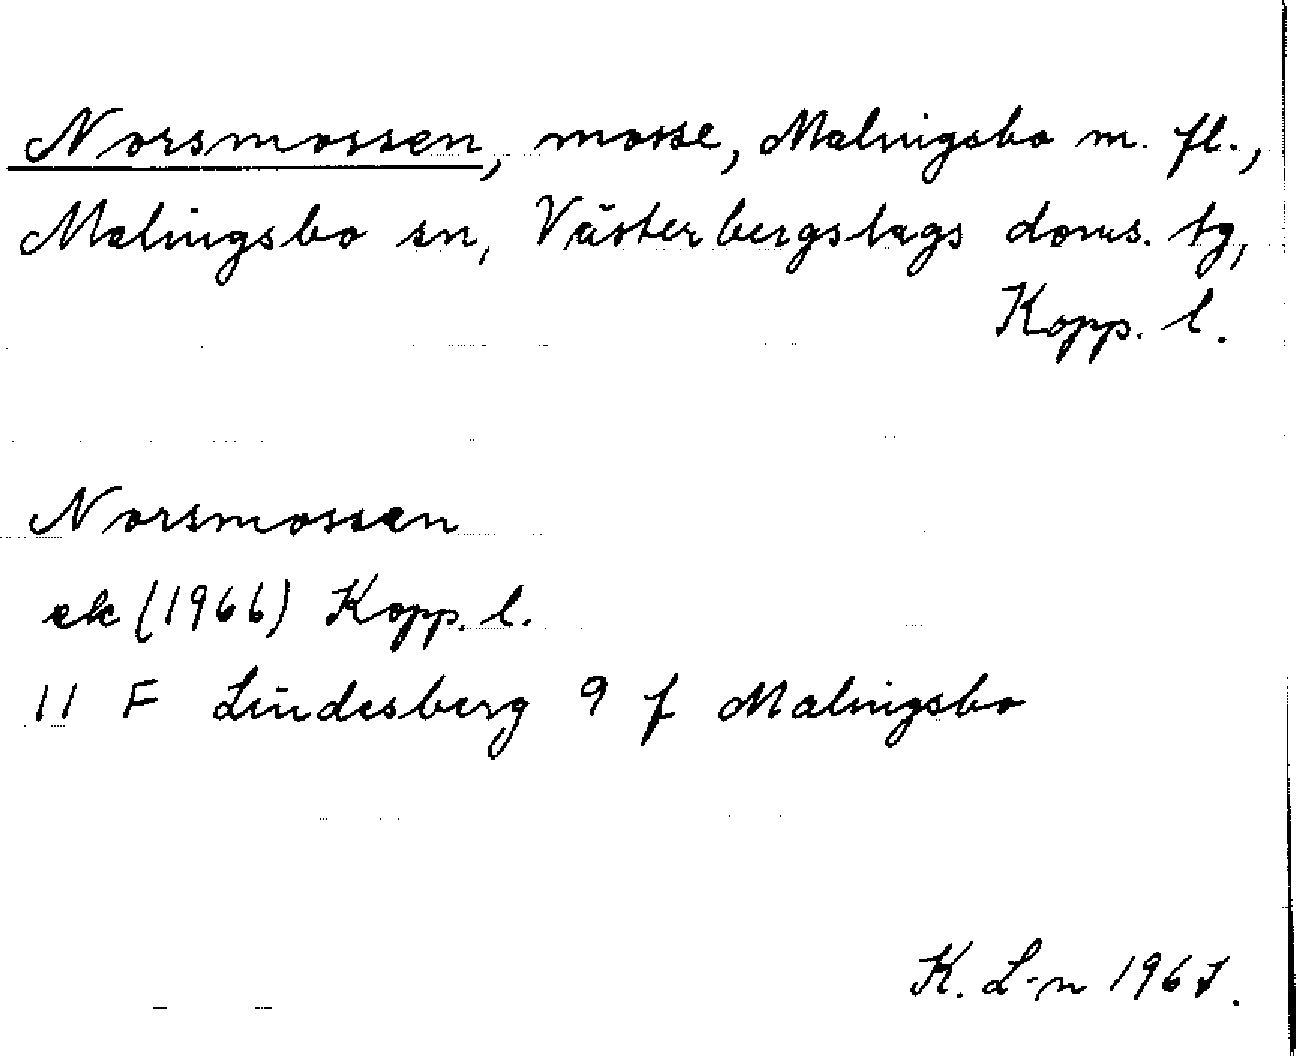 Norsmossen, mosse, Malingsbo m. fl.,
Malingsbo sn, Västerbergslags doms. tg,
Kopp. l.
Norsmossen
ek (1966) Kopp. l.
11 F Lindesberg 9 f Malingsbo
K. L-n 1967.